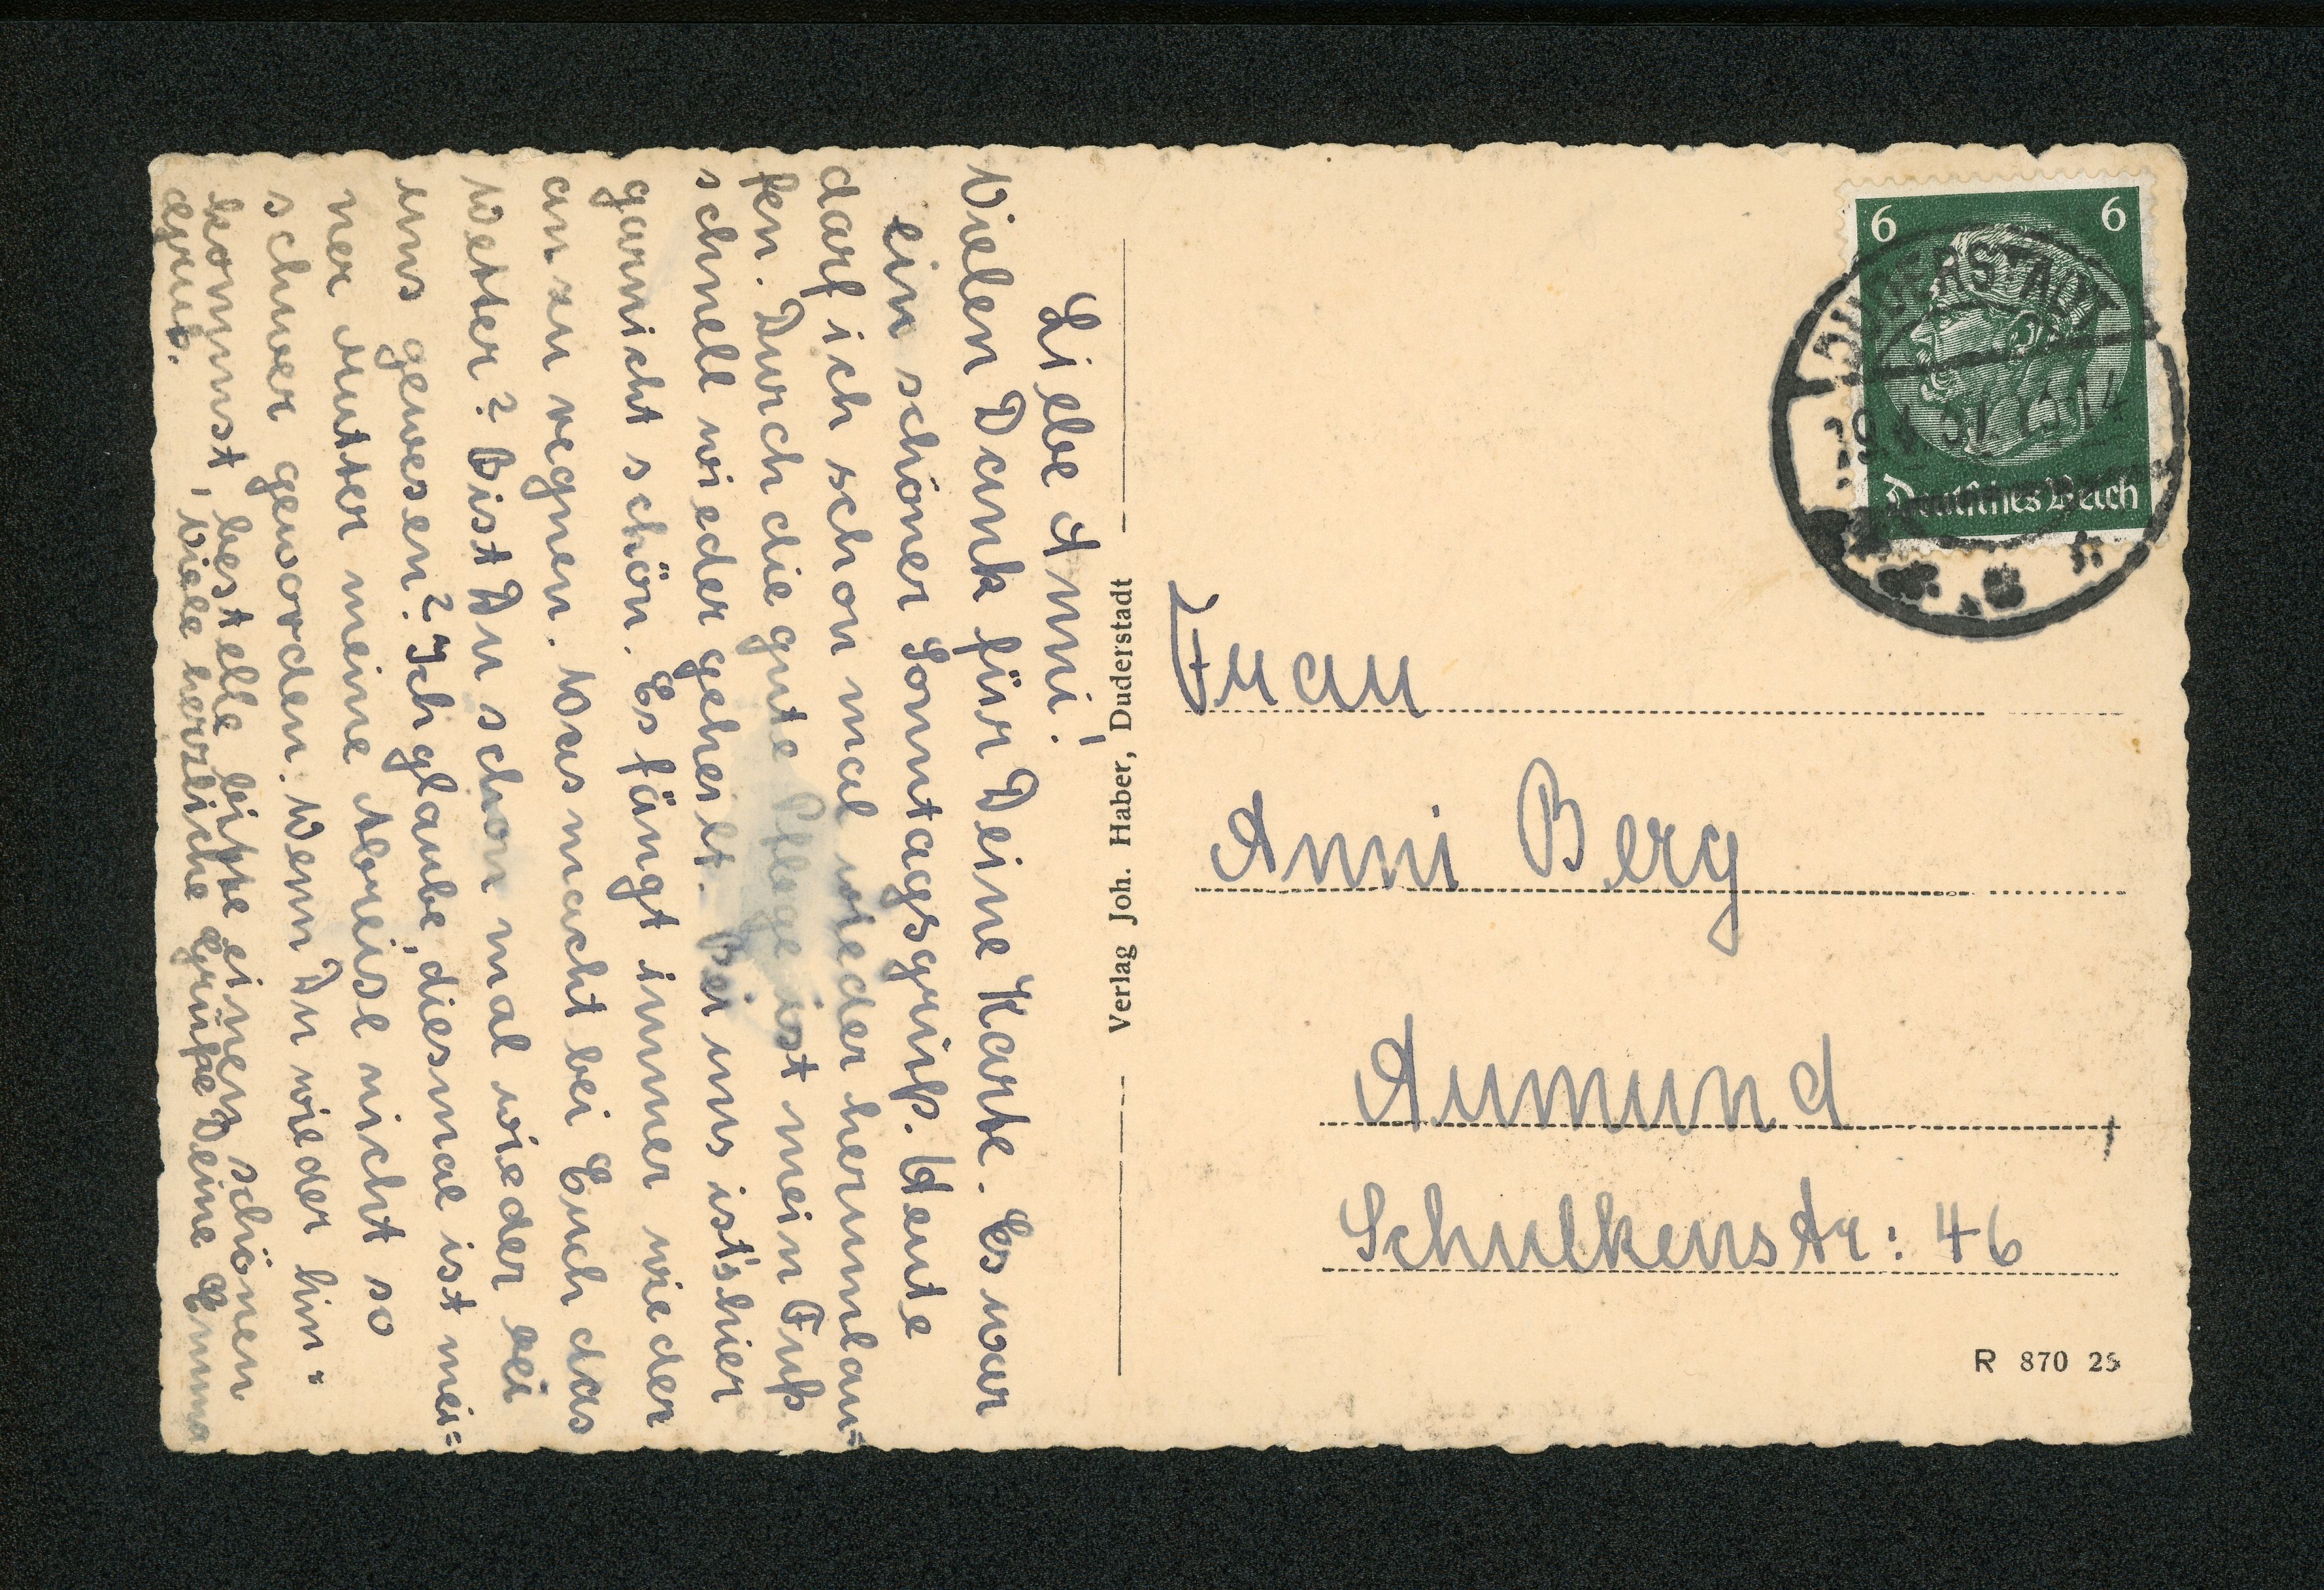 Liebe Anni!
Vielen Dank für Deine Karte. Es war
ein schöner Sonntagsgruß. Heute
darf ich schon mal wieder herumlau=
fen. Durch die gute Pflege ist mein Fuß
schnell wieder geheilt. Bei uns ist's hier
garnicht schön. Es fängt immer wieder
an zu regnen. Was macht bei Euch das
Wetter? Bist Du schon mal wieder bei
uns gewesen? Ich glaube, diesmal ist mei=
ner Mutter meine Abreise nicht so
schwer geworden. Wenn Du wieder hin-
kommst, bestelle bitte einen schönen
Gruß. Viele herzliche Grüße Deine Emma
Verlag Joh. Haber, Duderstadt
6 6
Deutsches Reich
DUDERSTADT
Frau
Anni Berg
Aumund
Schulkenstr: 46
R 870 25